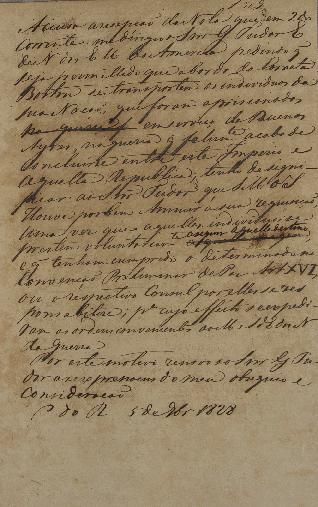 Accuso a recepção da Nota que, em 2 do
Corrente, me dirigio o Snr G Tudor E
de N dos E U da America pedindo q
seja permittido que a bordo da Corveta
Boston se transportem os individuos da
sua Nação, que foram aprisionados
em serviço de Buenos
Ayres, na guerra q felizmte acaba de
concluirse entre este Imperio e
aquella Republica, tenho de signi-
ficar ao Snr Tudor que S M O I
Houve por bem Annuir a sua requisição,
uma vez que aquelles individuos se
prestem voluntariamte
e q tenham cumprido o determinado na
Convenção Preliminar de Paz Art XVI
ou o respectivo Consul por elles se res
ponsabilize; pa cujo effeito se expedi
ram as ordens convenientes pella S d E do N
da Guerra
Por este motivo renovo ao Snr G Tu-
dor as expressoens do meu obsequio e
Consideração
P do R 5 de 1828